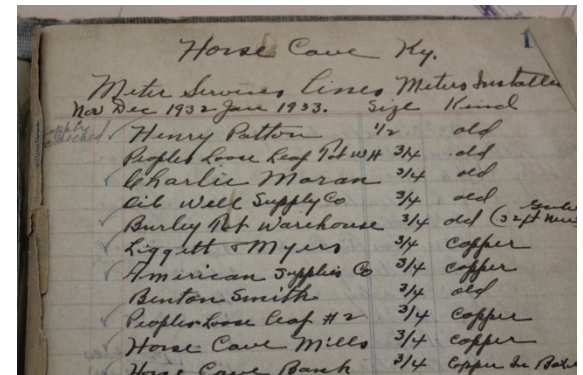 1
Horse Cave Ky.
Meter Services Lines Meters Installe
Nov Dec 1932 Jan 1933. Size Kind
checked ✓ Henry Patton 1/2 old
Peoples Loose Leaf Tob WH 3/4 old
✓ Charlie Moran 3/4 old
Oil Well Supply Co 3/4 old
✓ Burley Tob Warehouse 3/4 old (32 ft
✓ Liggett & Myers 3/4 copper
✓ American Supplies Co 3/4 copper
Benton Smith 3/4 old
✓ Peoples Loose Leaf #2 3/4 copper
✓ Horse Cave Mills 3/4 copper
Horse Cave Bank 3/4 Copper In